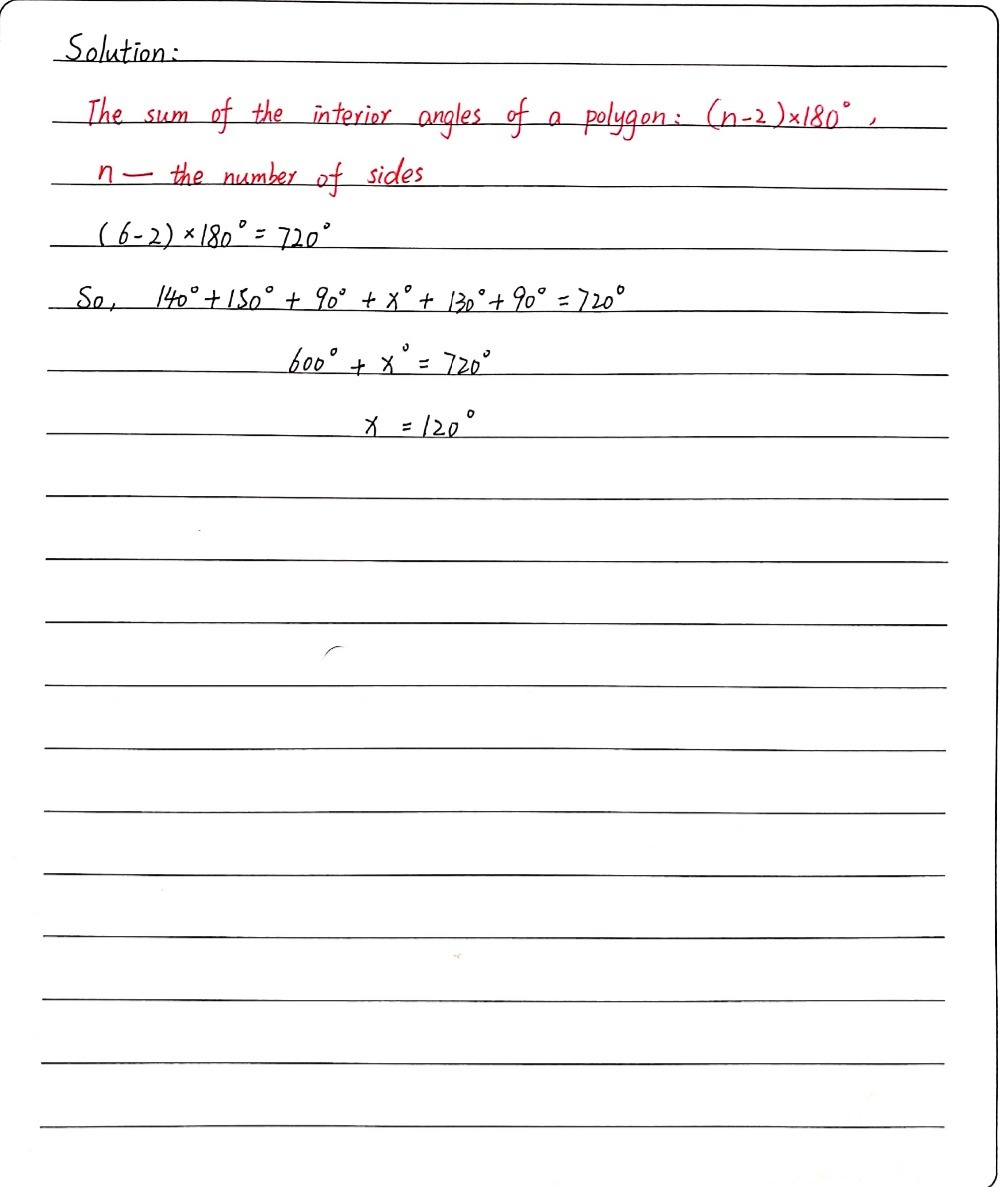 Solution:
The sum of the interior angles of a polygon: (n-2)×180°,
n — the number of sides
(6-2)×180°=720°
So, 140°+150°+90°+x°+130°+90°=720°
600°+x°=720°
x =120°